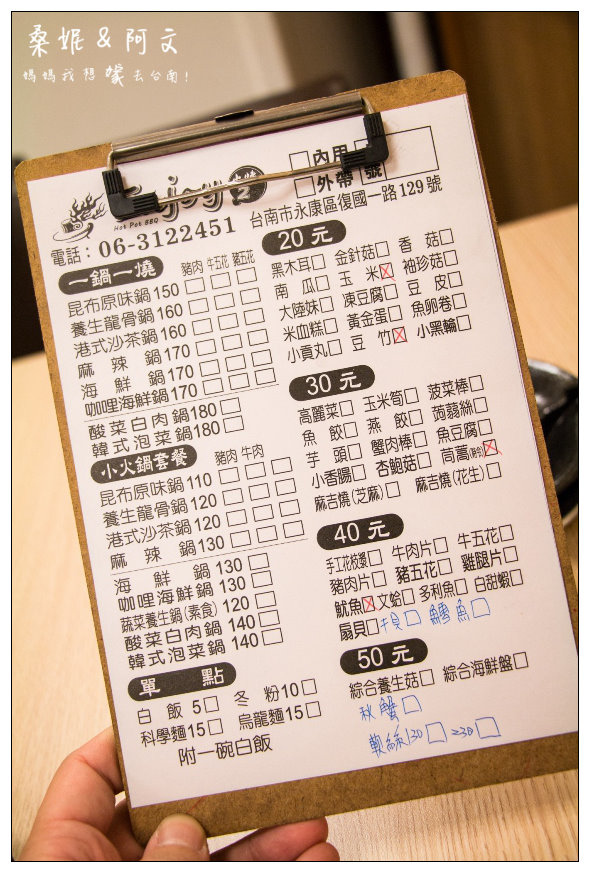 桑妮&阿文
媽媽我想嫁去台南!
Enjoy
Hot Pot BBQ
□內用
□外帶
號
電話：06-3122451 台南市永康區復國一路129號
一鍋一燒 豬肉 牛五花 豬五花
昆布原味鍋 150 □ □ □
養生龍骨鍋 160 □ □ □
港式沙茶鍋 160 □ □ □
麻辣鍋 170 □ □ □
海鮮鍋 170 □ □ □
咖哩海鮮鍋 170 □ □ □
酸菜白肉鍋 180 □
韓式泡菜鍋 180 □
小火鍋套餐 豬肉 牛肉
昆布原味鍋 110 □ □ □
養生龍骨鍋 120 □ □ □
港式沙茶鍋 120 □ □ □
麻辣鍋 130 □ □ □
海鮮鍋 130 □
咖哩海鮮鍋 130 □
蔬菜養生鍋(素食) 120 □
酸菜白肉鍋 140 □
韓式泡菜鍋 140 □
單點
白飯 5 □ 冬粉 10 □
科學麵 15 □ 烏龍麵 15 □
附一碗白飯
20元
黑木耳□ 金針菇□ 香菇□
南瓜□ 玉米☒ 袖珍菇□
大陸妹□ 凍豆腐□ 豆皮□
米血糕□ 黃金蛋□ 魚卵卷□
小貢丸□ 豆竹☒ 小黑輪□
30元
高麗菜□ 玉米筍□ 菠菜棒□
魚餃□ 燕餃□ 蒟蒻絲□
芋頭□ 蟹肉棒□ 魚豆腐□
小香腸□ 杏鮑菇□ 茼蒿(時價)☒
麻吉燒(芝麻)□ 麻吉燒(花生)□
40元
手工花枝漿□ 牛肉片□ 牛五花□
豬肉片□ 豬五花□ 雞腿片□
魷魚☒ 文蛤□ 多利魚□ 白甜蝦□
扇貝□ 干貝□ 鯛魚□
50元
綜合養生菇□ 綜合海鮮盤□
秋蟹□
軟絲130□ 230□